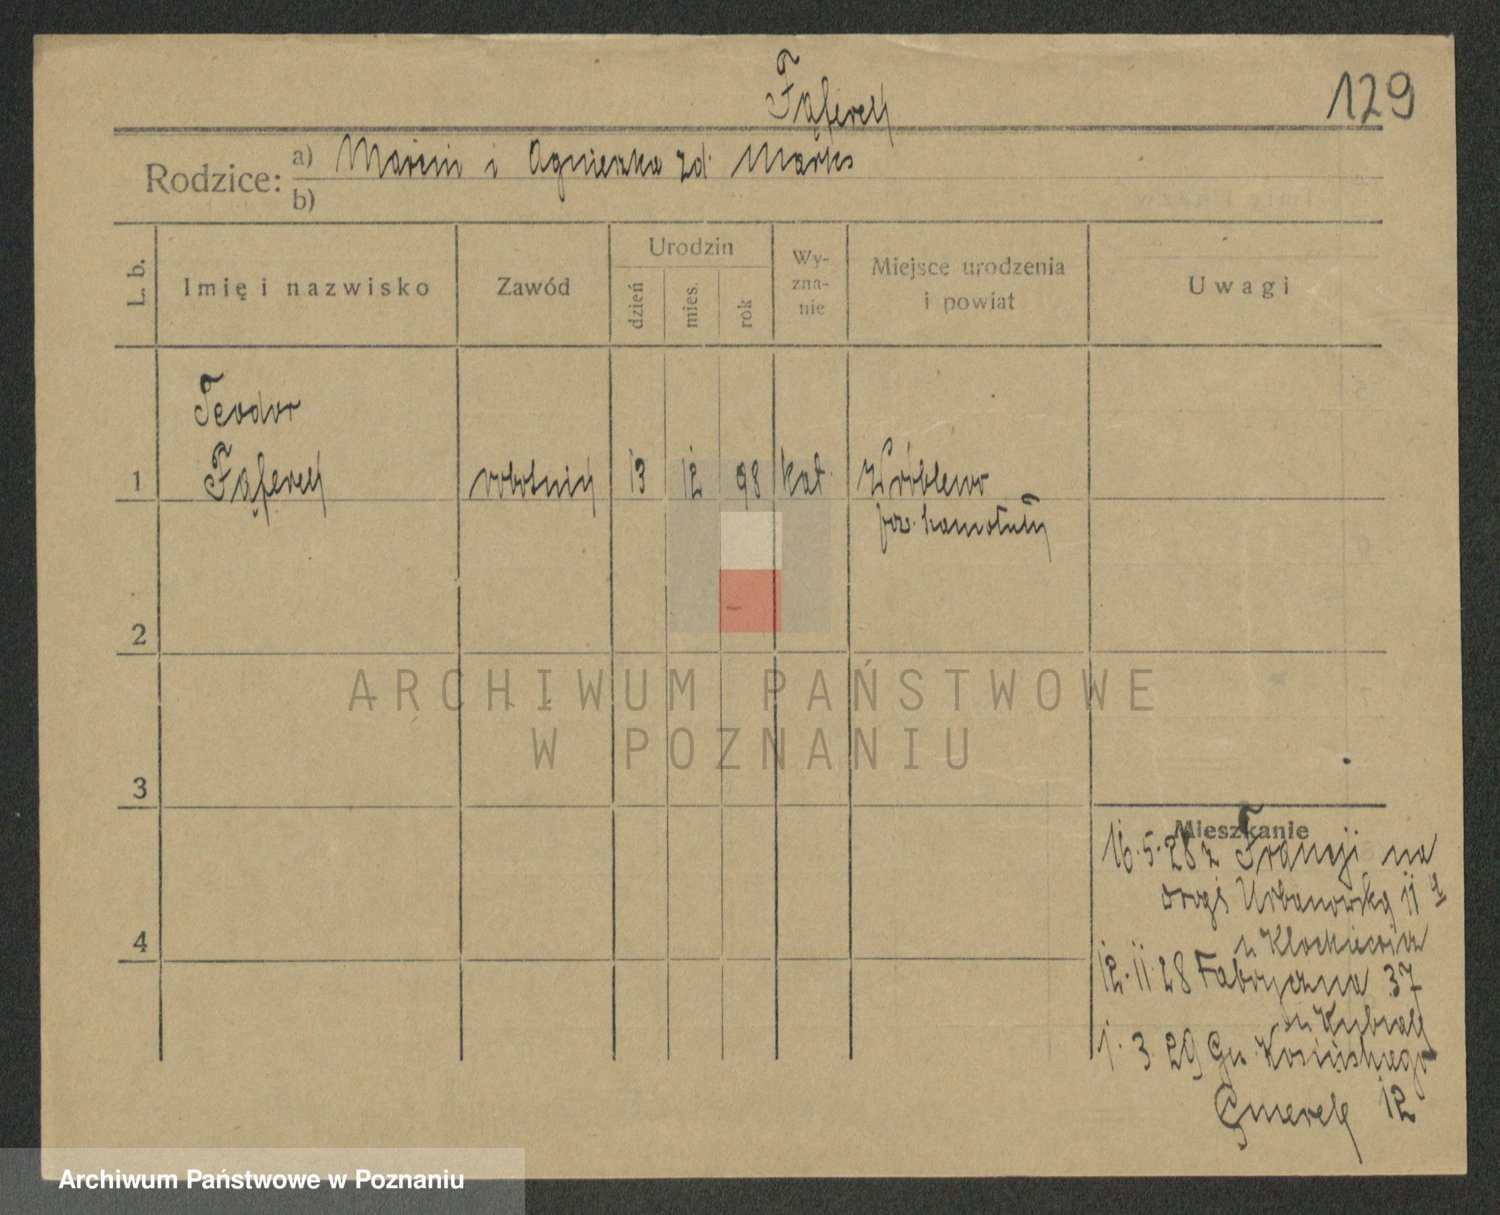 129
Fąferek
Rodzice: a) Marcin i Agnieszka zd. Marks
b)
L. b.
Imię i nazwisko
Zawód
Urodzin
dzień
mies.
rok
Wy-
zna-
nie
Miejsce urodzenia
i powiat
Uwagi
Teodor
1 Fąferek robotnik 13 12 98 kat. Wróblewo
pow. Szamotuły
2
3
4
Mieszkanie
16.5.28 z Francji na
drogę Urbanowską 11
12.11.28 Fabryczna 37
1.3.29 Gen. Kosińskiego
12
ARCHIWUM PAŃSTWOWE
W POZNANIU
Archiwum Państwowe w Poznaniu